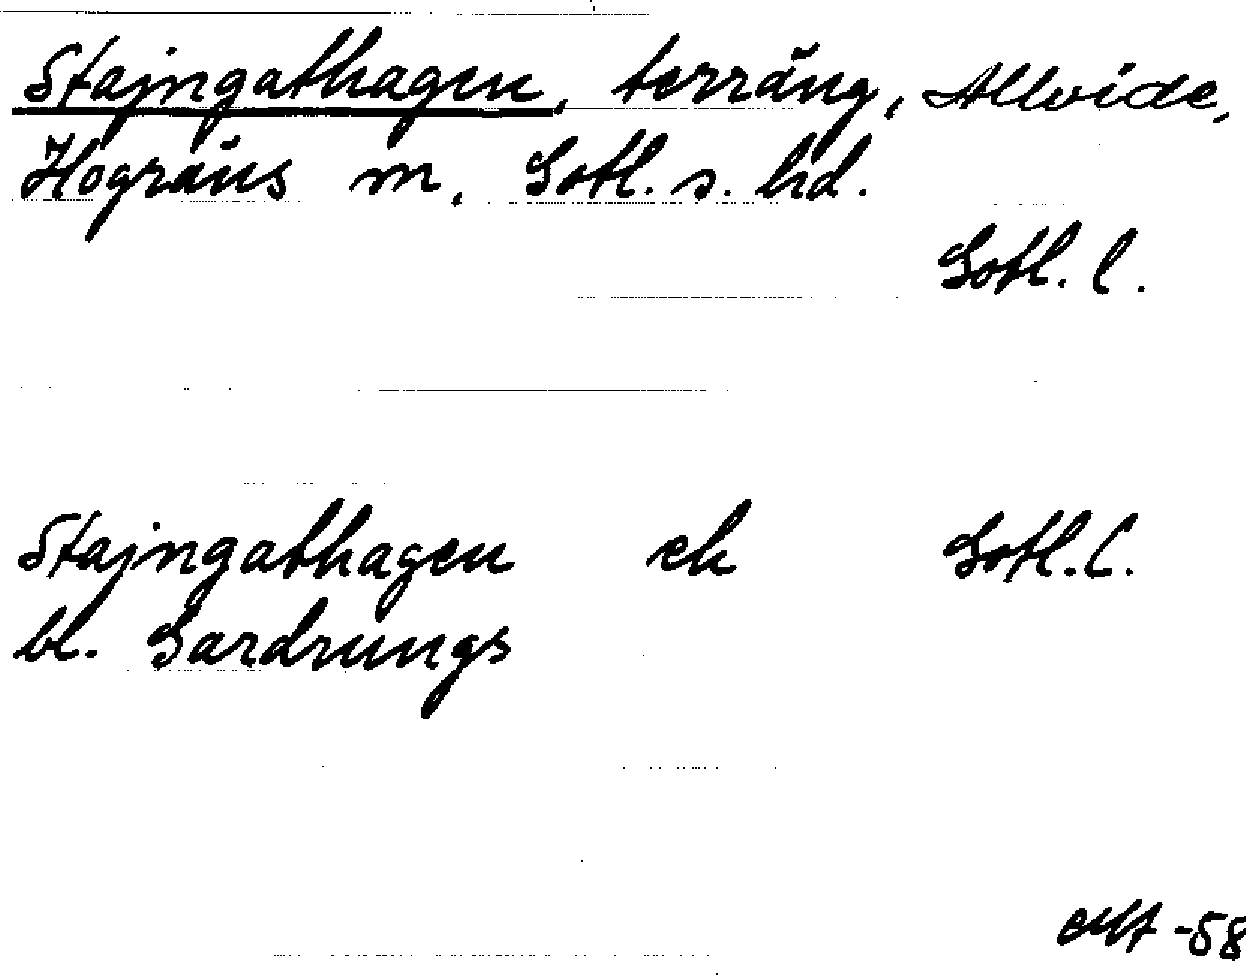 Stajngathagen, terräng, Allvide,
Hogräns sn, Gotl. s. hd.
Gotl. l.
Stajngathagen ek Gotl. l.
bl. Gardrungs
-58